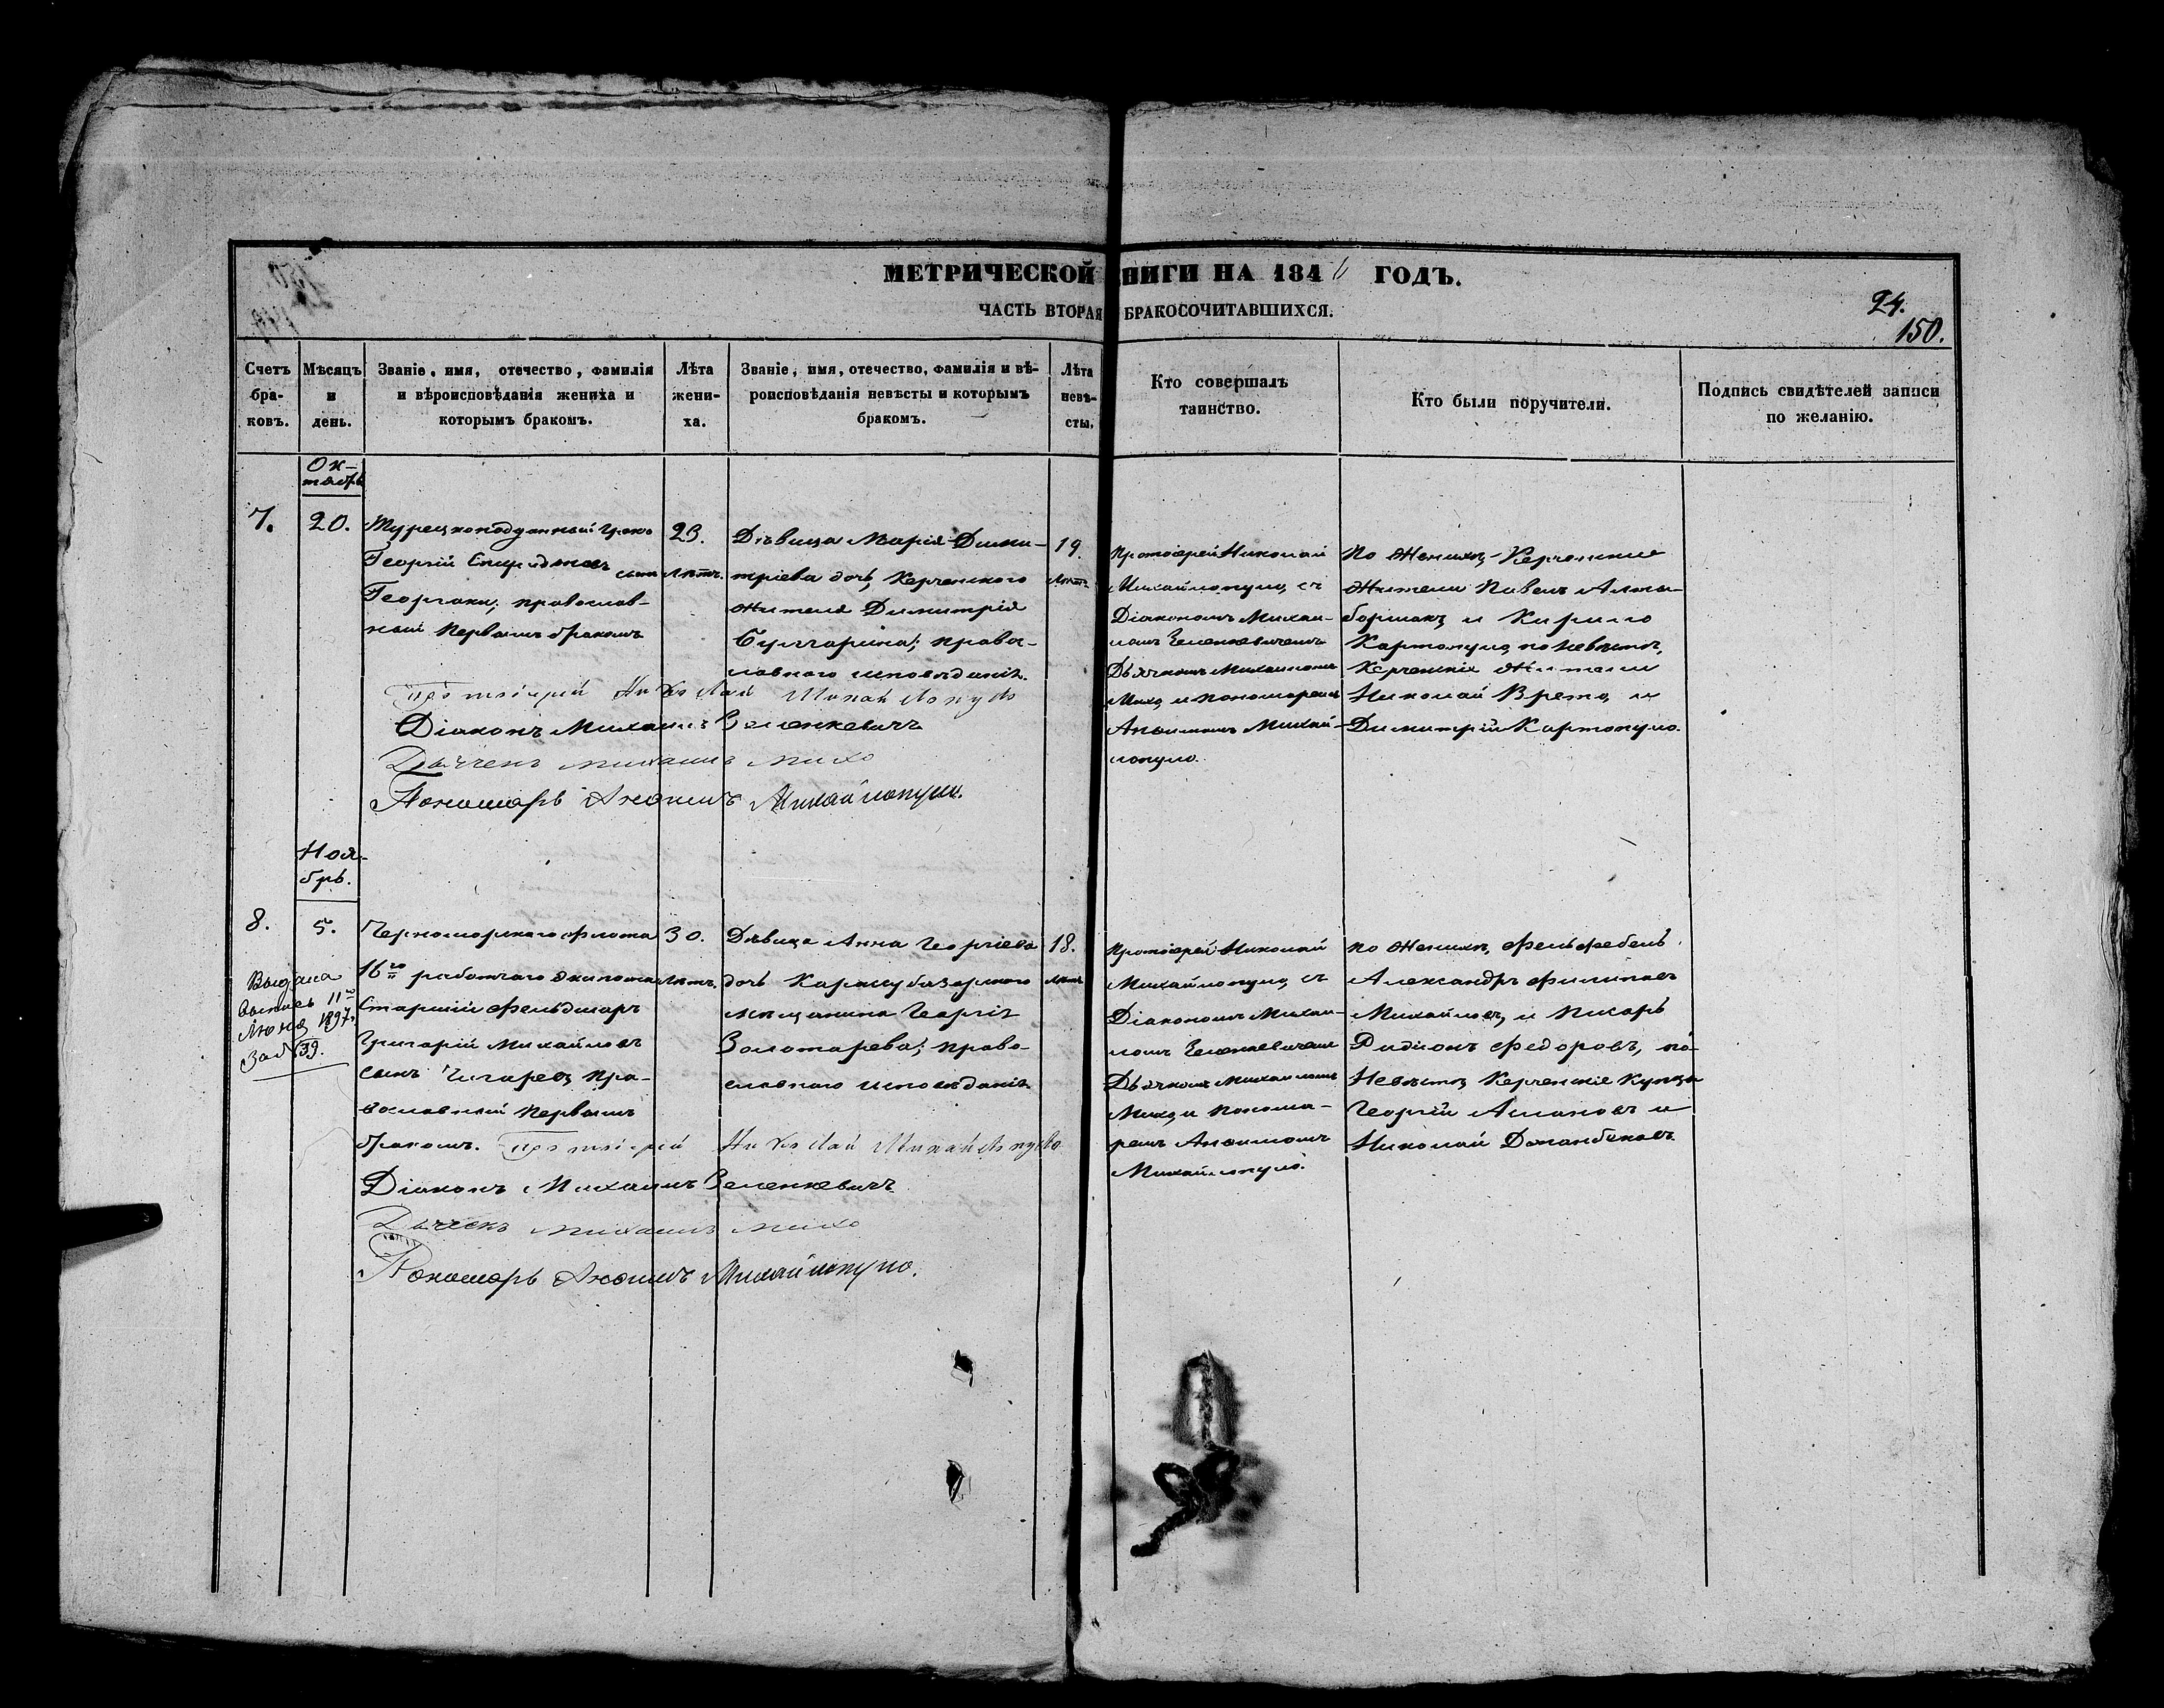 МЕТРИЧЕСКОЙ НИГИ НА 184 ГОДЪ.
ЧАСТЬ ВТОРАЯ БРАКОСОЧИТАВШИХСЯ.
24.
150.
Счетъ бра-ковъ.
Мѣсяцъ и день.
Званіе, имя, отечество, фамилія
и вѣроисповѣданія жениха и
которымъ бракомъ.
Лѣта жени-ха.
Званіе, имя, отечество, фамилія и вѣ-
роисповѣданія невѣсты и которымъ
бракомъ.
Лѣта невѣ-сты.
Кто совершалъ
таинство.
Кто были поручители.
Подпись свидѣтелей записи
по желанію.
Ок-
тябрь
7.
20.
Турецкоподданный Грекъ
Георгій Спиридоновъ сынъ
Георгаки; православ-
ный первымъ бракомъ
23.
лѣтъ.
Дѣвица Марія Дими-
тріева дочь, Керченскаго
жителя Димитрія
Булгарина; право-
славнаго исповѣданія.
19.
лѣтъ
Протоіерей Николай
Михайлопуло, съ
Діакономъ Михаи-
ломъ Зеленкевичемъ
Дьячкомъ Михаиломъ
Михо, и пономаремъ
Анфимомъ Михай-
лопуло.
По Женихѣ, Керченскіе
Жители Павелъ
и Кирилло
Картопуло, по Невѣстѣ,
Керченскіе Жители
Николай Врето, и
Димитрій Картопуло.
Протоіерей Николай Михайлопуло
Діаконъ Михаилъ Зеленкевичъ
Дьячекъ Михаилъ Михо
Пономарь Анфимъ Михайлопуло.
Ноя-
брь.
8.
5.
Выдана
выпись 11го
Іюня 1897г.
за № 39.
Черноморскаго флота
16го рабочаго экипажа
Старшій Фельдшеръ
Григорій Михайловъ
сынъ Чигаревъ пра-
вославный первымъ
бракомъ.
30.
лѣтъ.
Дѣвица Анна Георгіева
дочь Карасубазарскаго
мѣщанина Георгія
Золотарева; право-
славнаго исповѣданія
18.
лѣтъ
Протоіерей Николай
Михайлопуло, съ
Діакономъ Михаи-
ломъ Зеленкевичемъ
Дьячкомъ Михаиломъ
Михо, и понома-
ремъ Анфимомъ
Михайлопуло.
по Женихѣ, Фельдфебель
Александръ Филиповъ
Михайловъ, и Писарь
Радионъ Федоровъ, по
Невѣстѣ Керченскіе Купцы
Георгій Аслановъ и
Николай
Протоіерей Николай Михайлопуло
Діаконъ Михаилъ Зеленкевичъ
Дьячекъ Михаилъ Михо
Пономарь Анфимъ Михайлопуло.